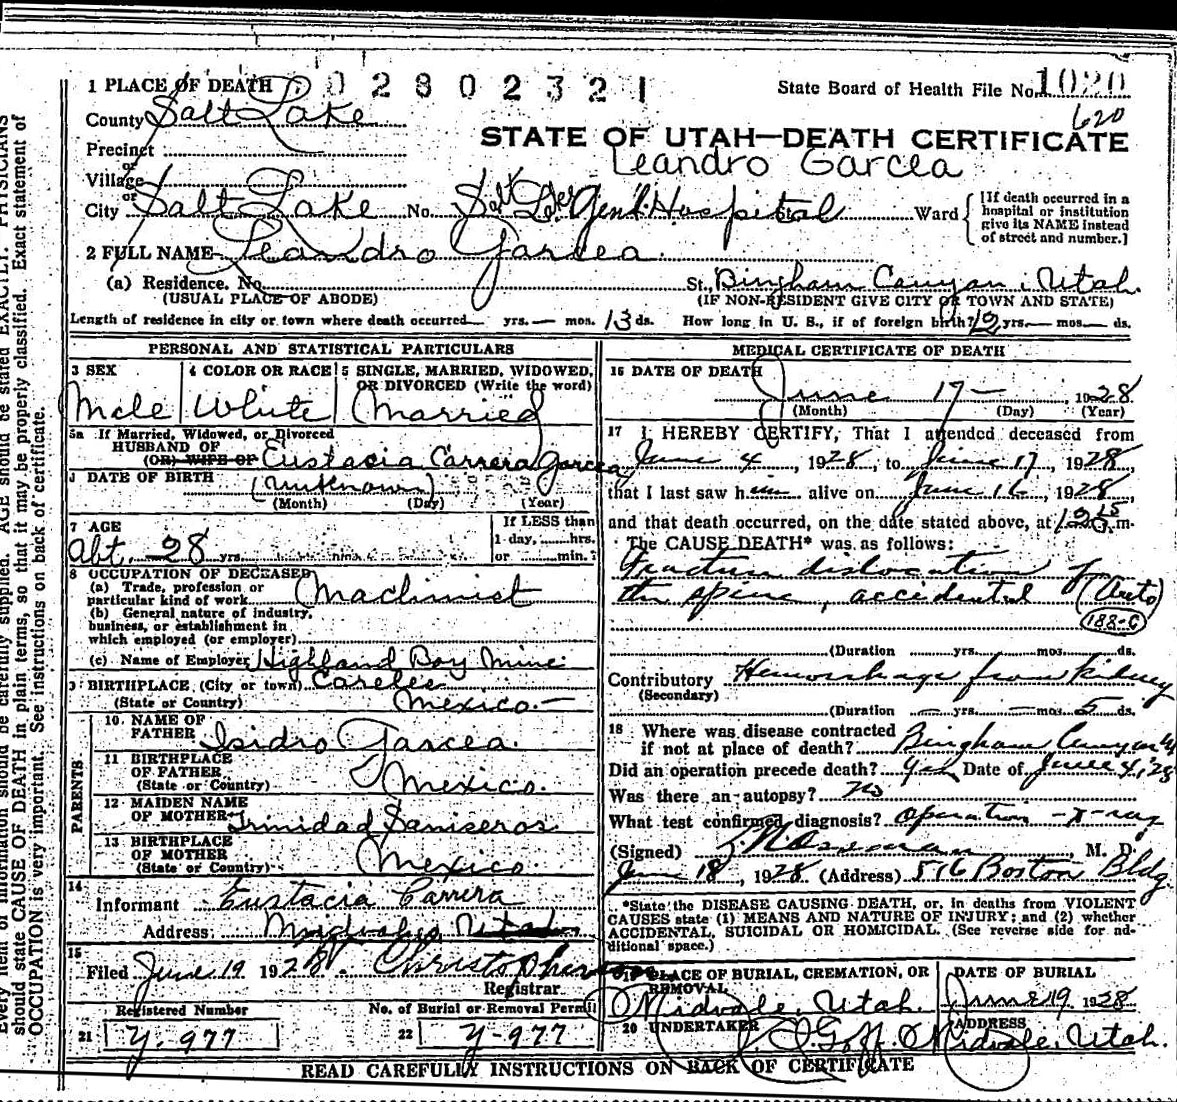 1 PLACE OF DEATH 0 2 8 0 2 3 2 1 State Board of Health File No. 1020
County Salt Lake 620
STATE OF UTAH—DEATH CERTIFICATE
Precinct
or
Leandro Garcea
Village
or
City Salt Lake No. Salt Lake Gen'l. Hospital Ward
[If death occurred in a
hospital or institution
give its NAME instead
of street and number.]
2 FULL NAME Leandro Garcea
(a) Residence. No. St., Bingham Canyon, Utah.
(USUAL PLACE OF ABODE) (IF NON-RESIDENT GIVE CITY OR TOWN AND STATE)
Length of residence in city or town where death occurred — yrs. — mos. 13 ds. How long in U. S., if of foreign birth? 12 yrs. — mos. — ds.
PERSONAL AND STATISTICAL PARTICULARS
3 SEX 4 COLOR OR RACE 5 SINGLE, MARRIED, WIDOWED,
OR DIVORCED (Write the word)
Male White Married
5a If Married, Widowed, or Divorced
HUSBAND OF
(OR) WIFE OF Eustacia Carrera Garcea
DATE OF BIRTH (Unknown)
(Month) (Day) (Year)
7 AGE If LESS than
1 day, hrs.
Abt. 28 yrs. or min.?
8 OCCUPATION OF DECEASED
(a) Trade, profession or
particular kind of work Machinist
(b) General nature of industry,
business, or establishment in
which employed (or employer)
(c) Name of Employer Highland Boy Mine
9 BIRTHPLACE (City or town)
(State or Country) Mexico.
PARENTS
10 NAME OF
FATHER Isidro Garcea.
11 BIRTHPLACE
OF FATHER
(State or Country) Mexico.
12 MAIDEN NAME
OF MOTHER Trinidad
13 BIRTHPLACE
OF MOTHER
(State or Country) Mexico.
14
Informant Eustacia Carrera
Address: Midvale, Utah
15
Filed June 19 1928. Christopherson
Registrar
Registered Number No. of Burial or Removal Permit
21 Y-977 22 Y-977
MEDICAL CERTIFICATE OF DEATH
16 DATE OF DEATH
June 17 — , 1928
(Month) (Day) (Year)
17 I HEREBY CERTIFY, That I attended deceased from
June 4, 1928, to June 17, 1928,
that I last saw him alive on June 16, 1928,
and that death occurred, on the date stated above, at 12:15 m.
The CAUSE DEATH* was as follows:
Fracture dislocation of
the spine, accidental (Auto)
188-C
(Duration yrs. mos. ds.
Contributory Hemorrhage from kidney
(Secondary)
(Duration — yrs. — mos. 5 ds.
18 Where was disease contracted
if not at place of death? Bingham Canyon
Did an operation precede death? Yes Date of June 4, '28
Was there an autopsy? No
What test confirmed diagnosis? Operation - X-ray
(Signed) , M. D.
June 18, 1928 (Address) 516 Boston Bldg.
*State the DISEASE CAUSING DEATH, or, in deaths from VIOLENT
CAUSES state (1) MEANS AND NATURE OF INJURY; and (2) whether
ACCIDENTAL, SUICIDAL OR HOMICIDAL. (See reverse side for ad-
ditional space.)
19 PLACE OF BURIAL, CREMATION, OR
REMOVAL DATE OF BURIAL
Midvale, Utah. June 19 1928
20 UNDERTAKER ADDRESS
Goff. Midvale, Utah.
READ CAREFULLY INSTRUCTIONS ON BACK OF CERTIFICATE
Every item of information should be carefully supplied. AGE should be stated EXACTLY. PHYSICIANS
should state CAUSE OF DEATH in plain terms, so that it may be properly classified. Exact statement of
OCCUPATION is very important. See instructions on back of certificate.